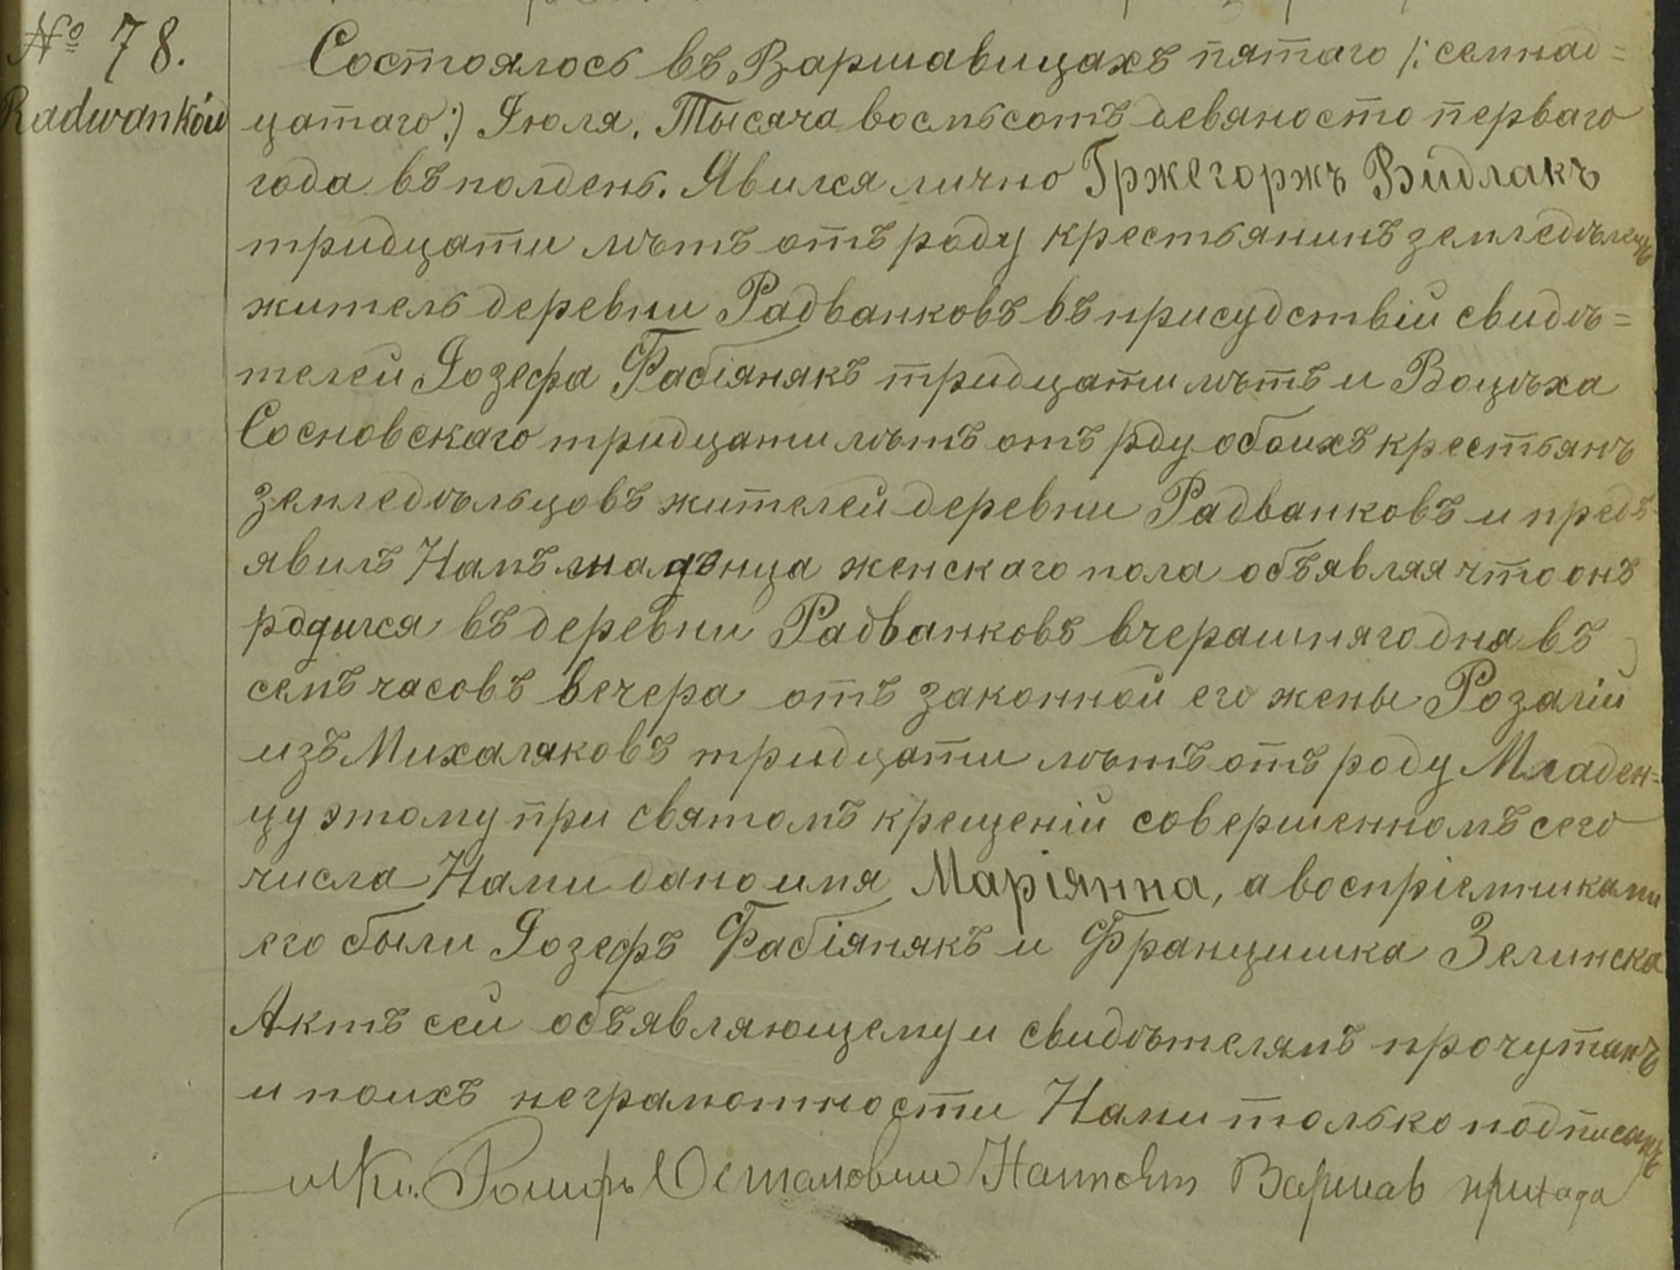 № 78.
Radwanków
Состоялось въ Варшавицахъ пятаго /: семнад=
цатаго:) Іюля, Тысяча восемьсотъ девяносто перваго
года въ полдень. Явился лично Гржегоржъ Видлакъ
тридцати лѣтъ отъ роду крестьянинъ земледѣлецъ
житель деревни Радванковъ въ присудствіи свидѣ=
телей Іозефа Фабіянякъ тридцати лѣтъ и Воцѣха
Сосновскаго тридцати лѣтъ отъ роду обоихъ крестьянъ
земледѣльцовъ жителей деревни Радванковъ и предъ
явилъ Намъ младенца женскаго пола объявляя что онъ
родился въ деревни Радванковъ вчерашняго дня въ
семъ часовъ вечера отъ законной его жены Розаліи
изъ Михаляковъ тридцати лѣтъ отъ роду Младен=
цу этому при святомъ крещеніи совершенномъ сего
числа Нами дано имя Маріянна, а воспріемниками
его были Іозефъ Фабіянякъ и Францишка Зелинска
Актъ сей объявляющему и свидѣтелямъ прочутанъ
и по ихъ неграмотности Нами только подписанъ
Кс. Варшав прихода